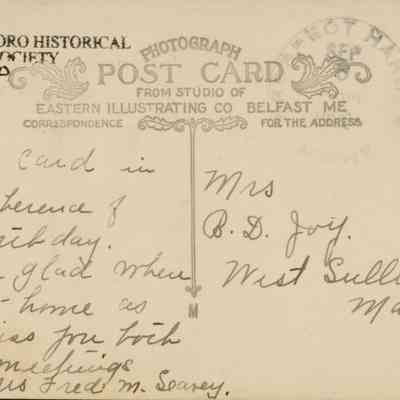 ORO HISTORICAL
OCIETY
PHOTOGRAPH
POST CARD
FROM STUDIO OF
EASTERN ILLUSTRATING CO BELFAST ME
CORRESPONDENCE
FOR THE ADDRESS
card in
glad when
home as
iss you both
meetings
Fred M. Searey.
M
Mrs
B. D. Joy.
West Sulli
Ma